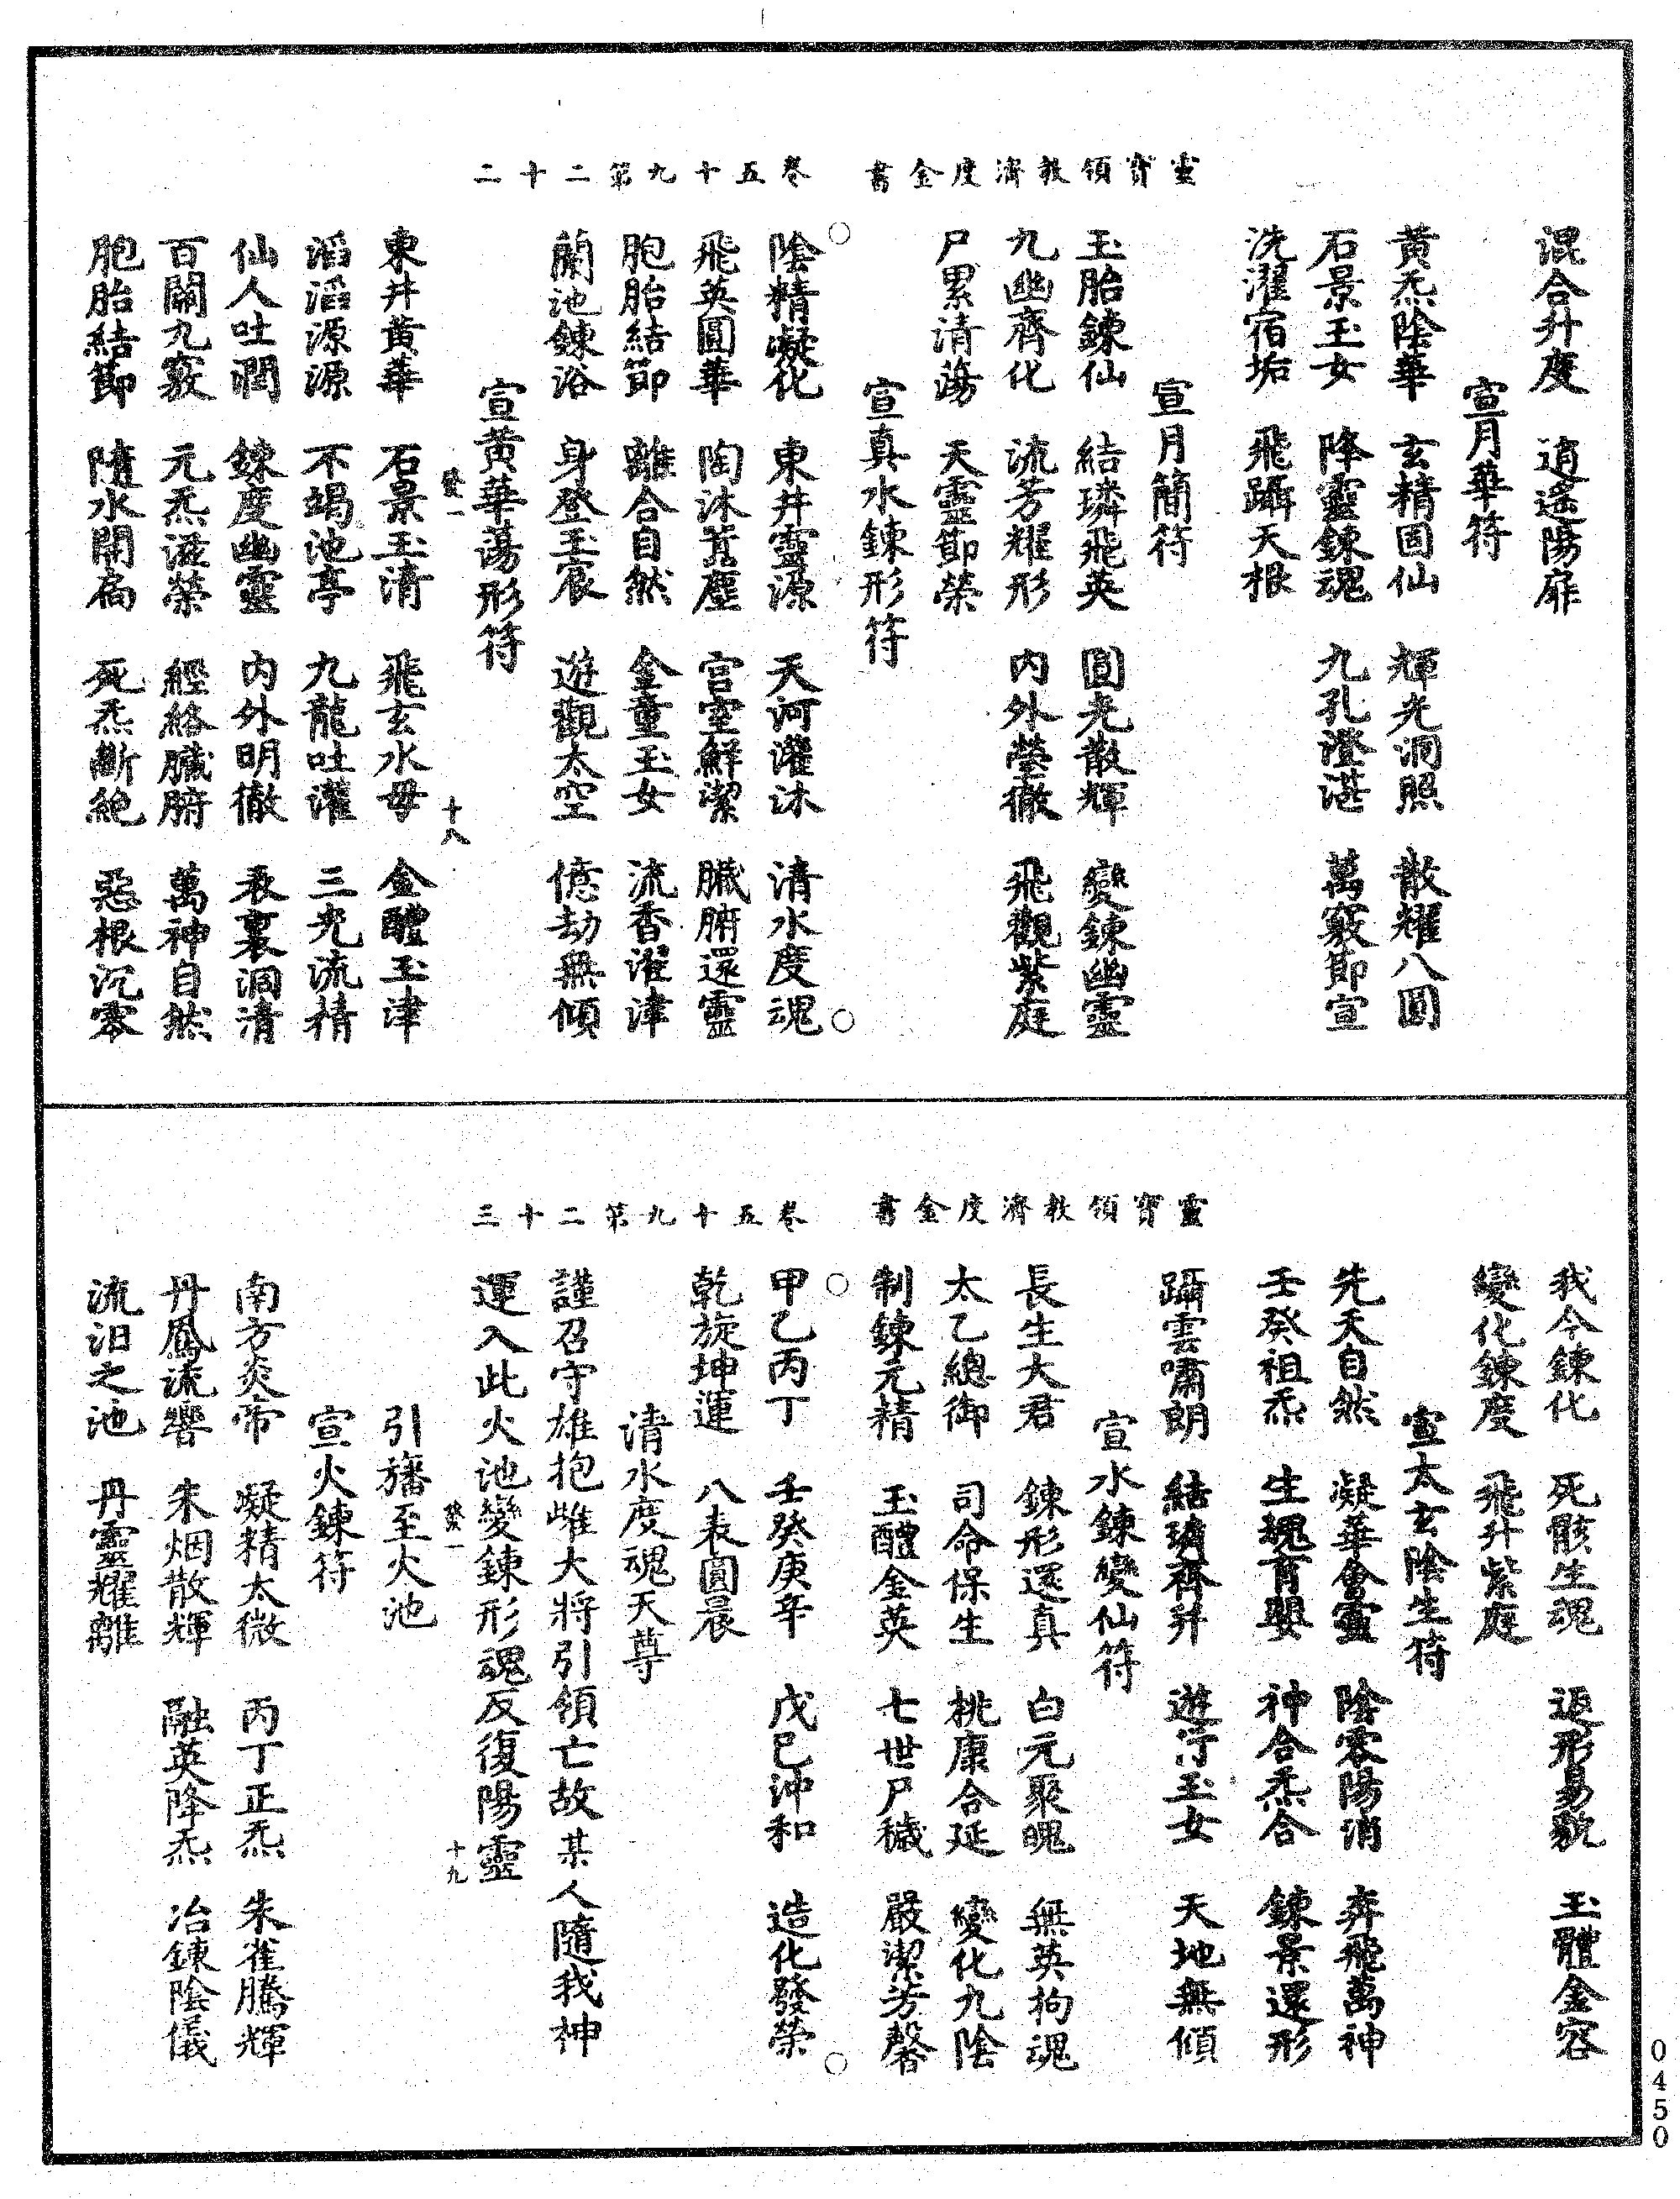 靈寶領教濟度金書　卷五十九第二十二
混合升度　逍遙陽扉
宣月華符
黃炁陰華　玄精固仙　輝光洞照　散耀八圓
石景玉女　降靈鍊魂　九孔澄湛　萬竅節宣
洗濯宿垢　飛躡天根
宣月簡符
玉胎鍊仙　結璘飛英　圓光散輝　變鍊幽靈
九幽齊化　流芳耀形　內外瑩徹　飛觀紫庭
尸累清蕩　天靈節榮
宣真水鍊形符
○陰精凝化　東井靈源　天河灌沐　清水度魂○
飛英圓華　陶沐蒖塵　宮室鮮潔　臟腑還靈
胞胎結節　離合自然　金童玉女　流香濯津
蘭池鍊浴　身登玉宸　遊觀太空　億劫無傾
宣黃華蕩形符
發一　十八
東井黃華　石景玉清　飛玄水母　金醴玉津
滔滔源源　不竭池亭　九龍吐灌　三光流精
仙人吐潤　鍊度幽靈　內外明徹　表裏洞清
百關九竅　元炁滋榮　經絡臟腑　萬神自然
胞胎結節　隨水開扃　死炁斷絕　惡根沉零
靈寶領教濟度金書　卷五十九第二十三
我今鍊化　死骸生魂　返形易貌　玉體金容
變化鍊度　飛升紫庭
宣太玄陰生符
先天自然　凝華會靈　陰零陽消　奔飛萬神
壬癸祖炁　生魂育嬰　神合炁合　鍊景還形
躡雲嘯朗　結璘齊升　遊行玉女　天地無傾
宣水鍊變仙符
長生大君　鍊形還真　白元聚魄　無英拘魂
太乙總御　司命保生　桃康合延　變化九陰
制鍊元精　玉醴金英　七世尸穢　嚴潔芳馨
○甲乙丙丁　壬癸庚辛　戊己沖和　造化發榮○
乾旋坤運　八表圓晨
清水度魂天尊
謹召守雄抱雌大將引領亡故某人隨我神
運入此火池變鍊形魂反復陽靈
發一　十九
引旛至火池
宣火鍊符
南方炎帝　凝精太微　丙丁正炁　朱雀騰輝
丹鳳流響　朱烟散輝　融英降炁　冶鍊陰儀
流汩之池　丹靈耀離
0450